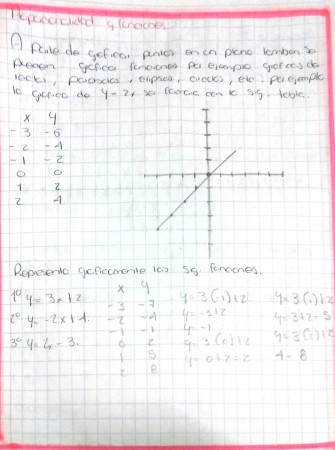 Proporcionalidad y funciones.
① Parte de graficar puntos en un plano tambien se
pueden graficar funciones por ejemplo graficas de
rectas, parabolas, elipses, circulos, etc. por ejemplo
la grafica de y = 2x se forma con la sig. tabla.
x y
-3 -6
-2 -4
-1 -2
0 0
1 2
2 4
Representa graficamente las sig. funciones.
1º y = 3x + 2
2º y = -2x + 4.
3º y = 2x - 3.
x y
-3 -7
-2 -4
-1 -1
0 2
1 5
2 8
y = 3(-1)+2
y = -3+2
y = -1
y = 3(0)+2
y = 0+2 = 2
y = 3(1)+2
y = 3+2 = 5
y = 3(2)+2
y = 8